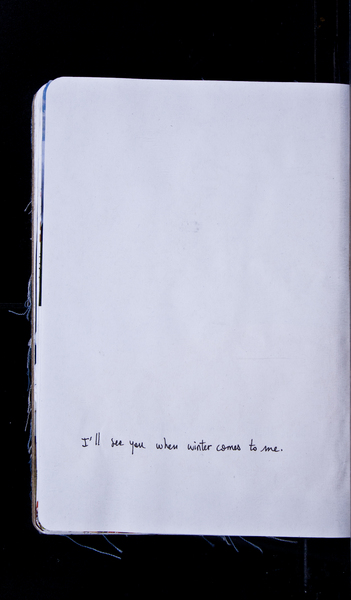 I'll see you when winter comes to me.